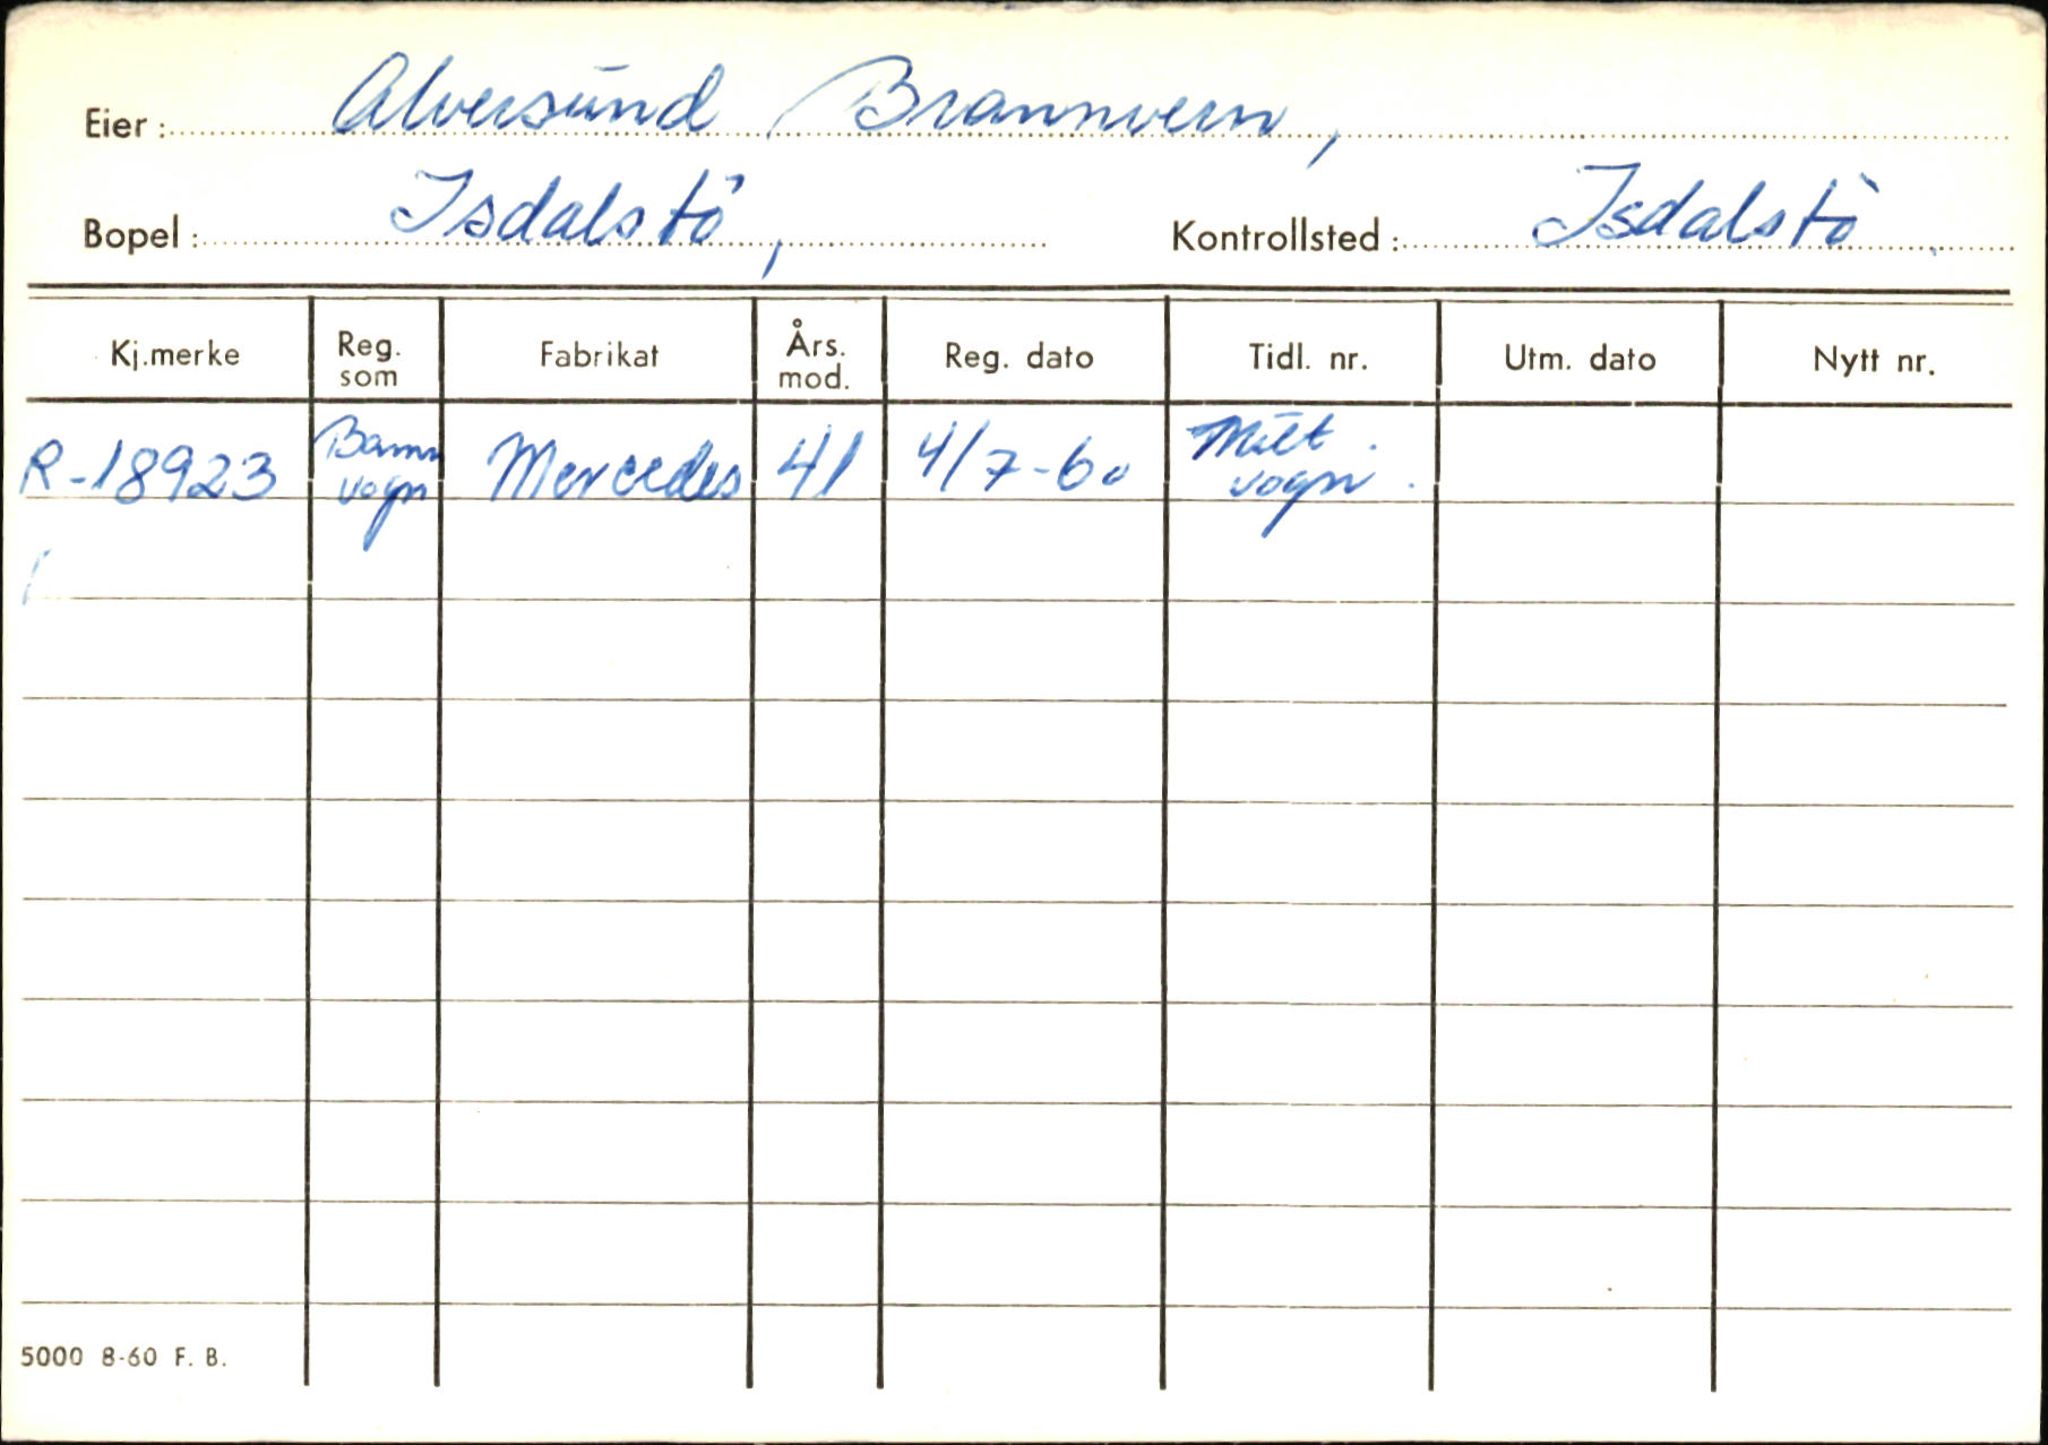 Eier: Alversund Brannvern,
Bopel: Isdalstö, Kontrollsted: Isdalstö
Kj.merke Reg. som Fabrikat Års. mod. Reg. dato Tidl. nr. Utm. dato Nytt nr.
R-18923 vogn Mercedes 41 4/7-60 Milt. vogn.
5000 8-60 F. B.